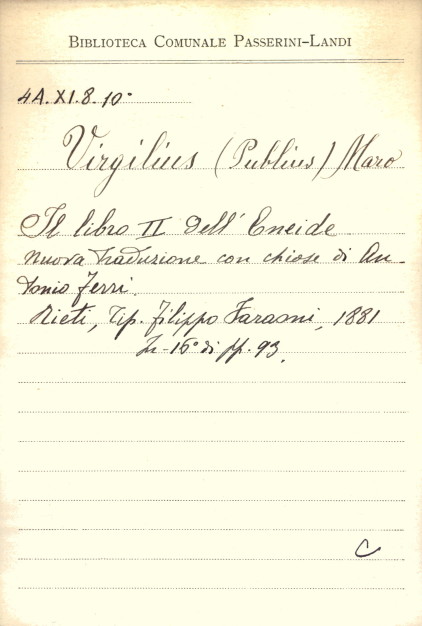 BIBLIOTECA COMUNALE PASSERINI-LANDI
4A.XI.8.10°
Virgilius (Publius) Maro
Il libro II dell' Eneide
Nuova traduzione con chiose di An-
tonio Ferri.
Rieti, Tip. Filippo Faraoni, 1881
In-16° di pp. 93.
C